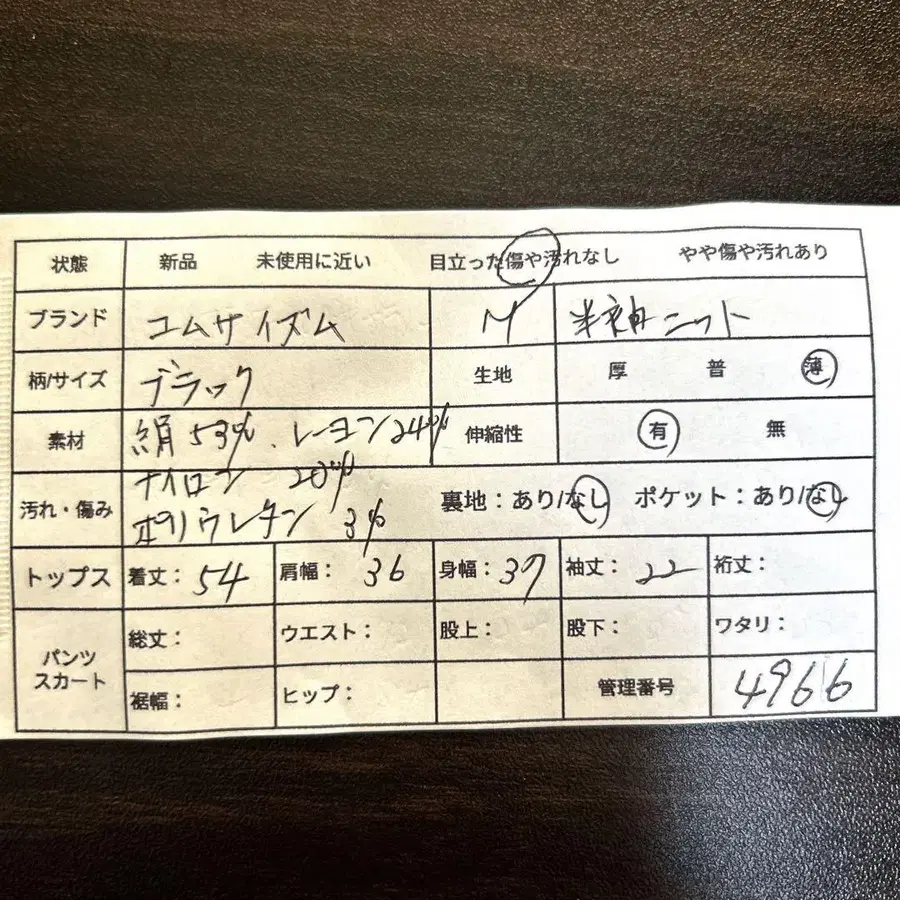 状態 新品 未使用に近い 目立った傷や汚れなし やや傷や汚れあり
ブランド コムサイズム M 半袖ニット
柄/サイズ ブラック 生地 厚 普 薄
素材 絹53% レーヨン24% 伸縮性 有 無
ナイロン 20%
汚れ・傷み ポリウレタン 3% 裏地：あり/なし ポケット：あり/なし
トップス 着丈：54 肩幅：36 身幅：37 袖丈：22 裄丈：
パンツ スカート 総丈： ウエスト： 股上： 股下： ワタリ：
裾幅： ヒップ： 管理番号 4966